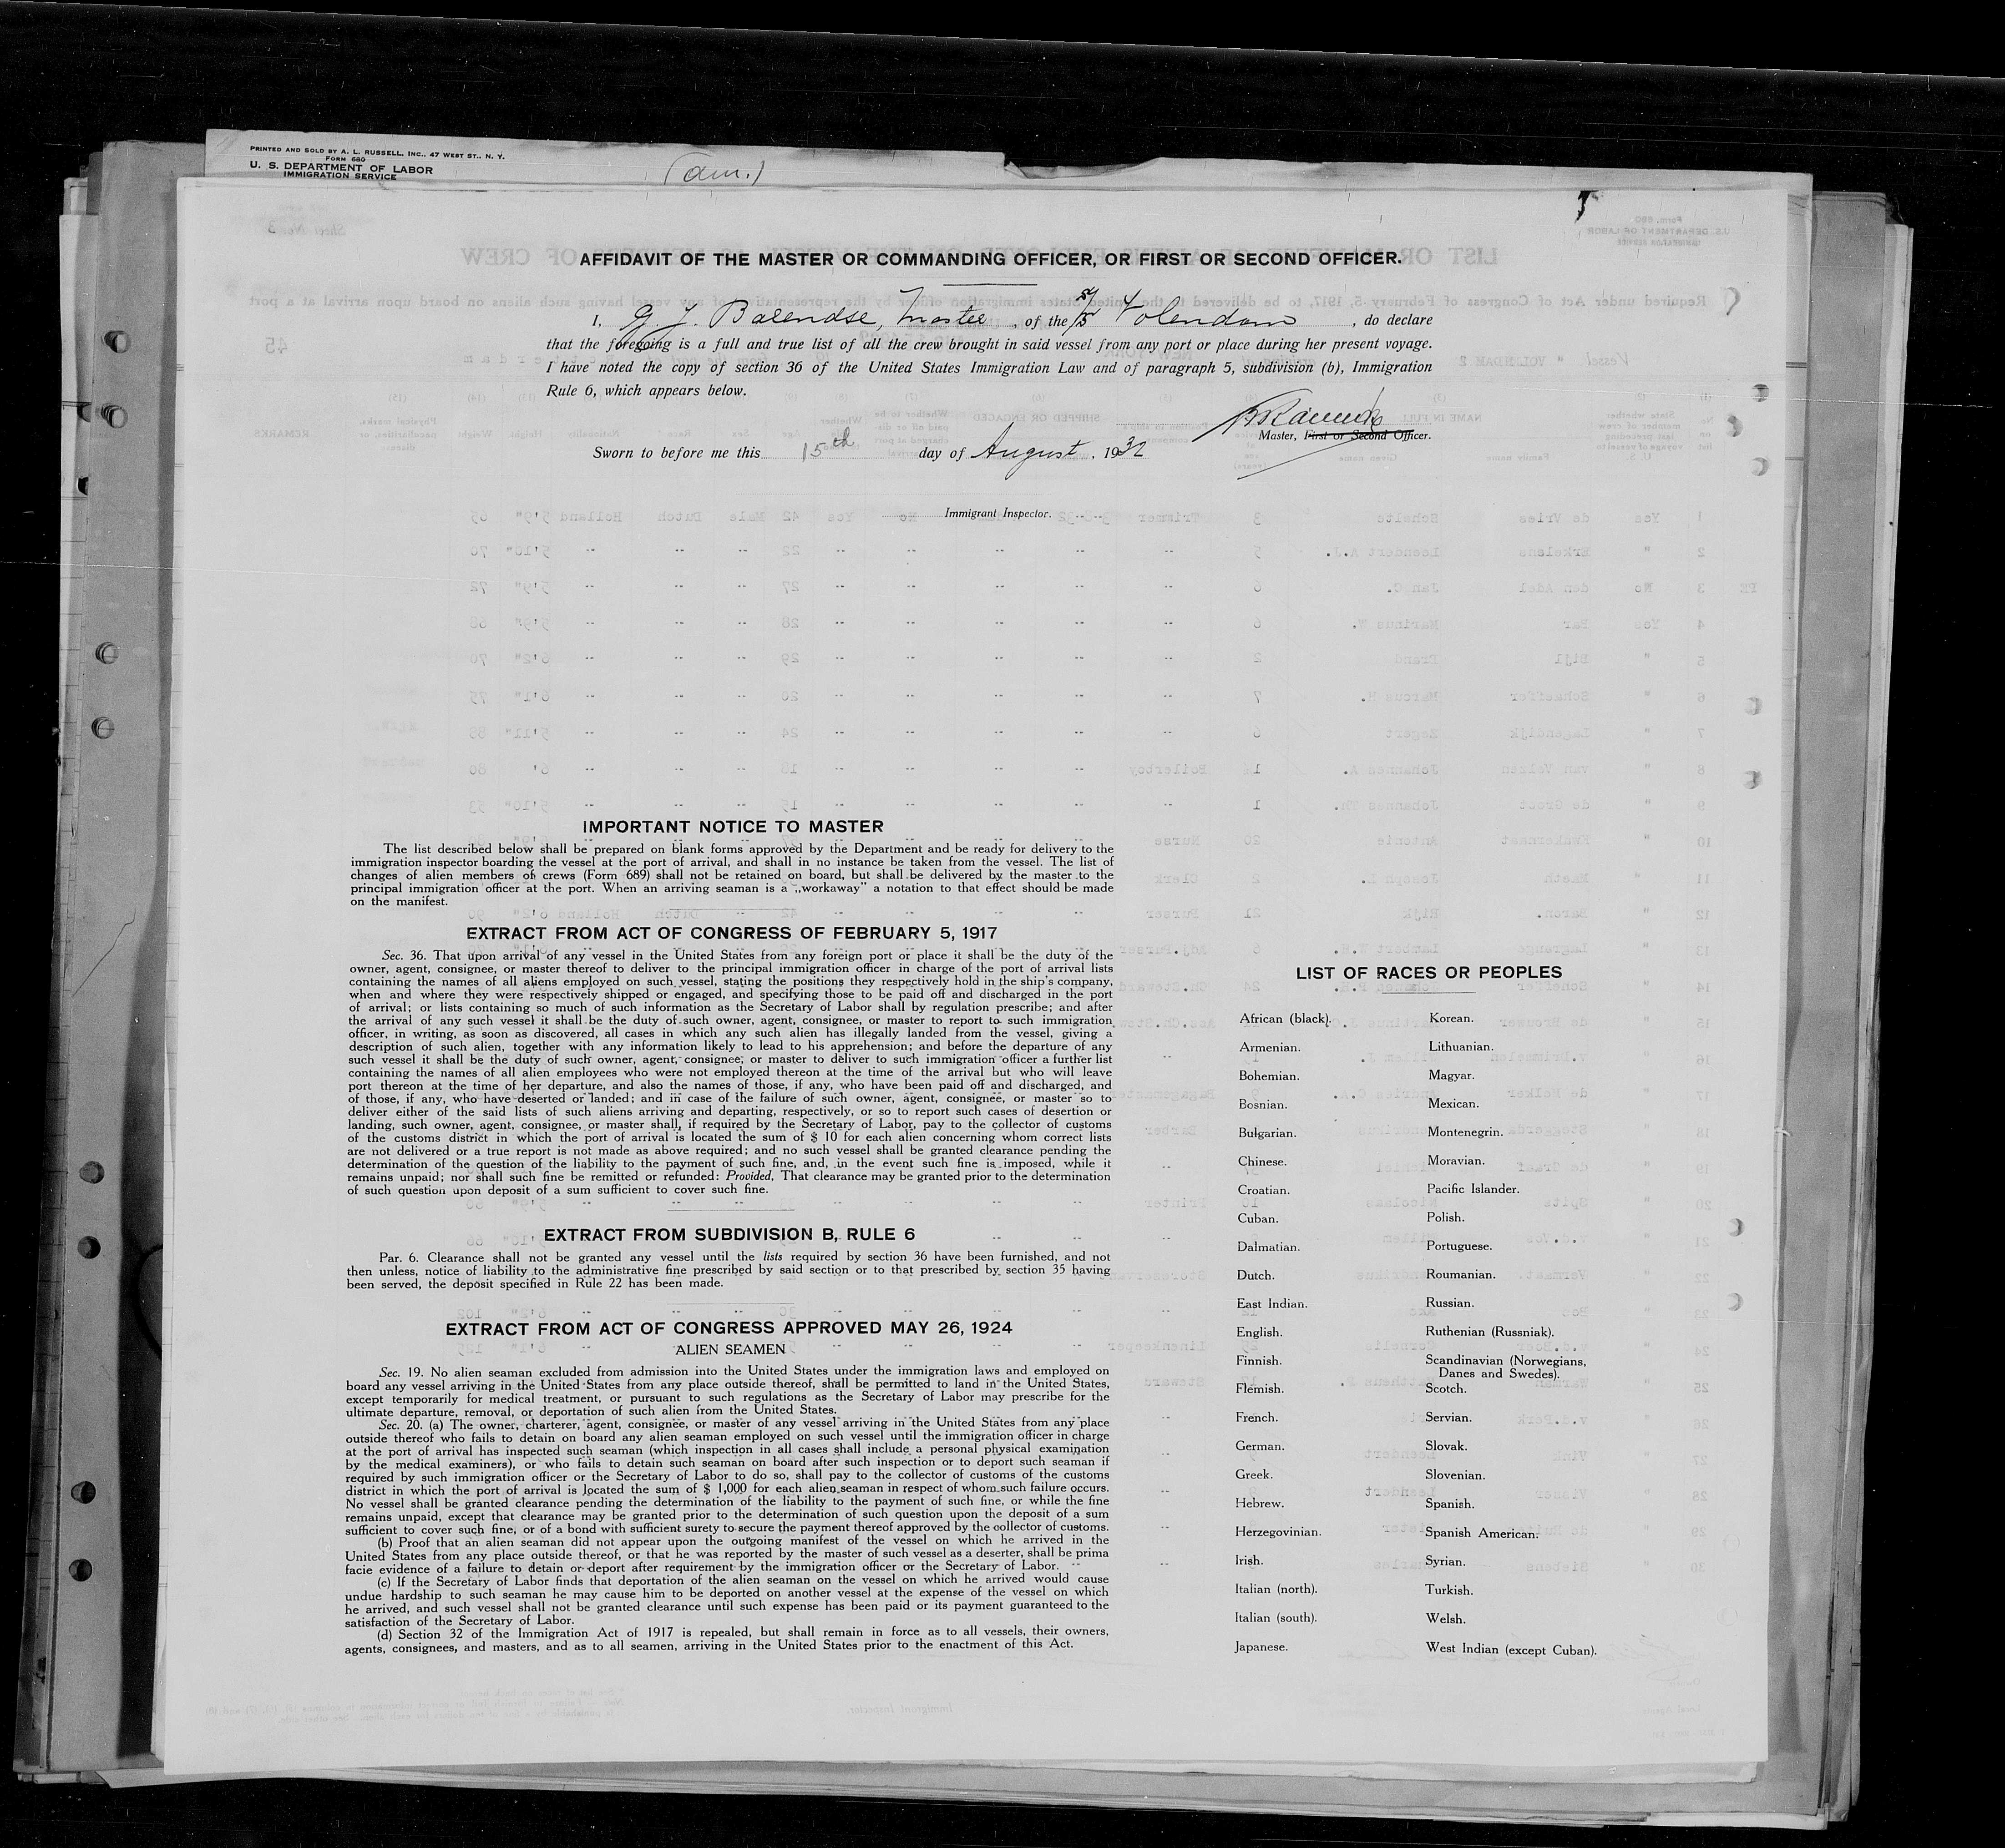 PRINTED AND SOLD BY A. L. RUSSELL, INC., 47 WEST ST., N. Y.
FORM 680
U. S. DEPARTMENT OF LABOR
IMMIGRATION SERVICE
(am.)
AFFIDAVIT OF THE MASTER OR COMMANDING OFFICER, OR FIRST OR SECOND OFFICER.
I, G. J. Barendse, Master, of the S/S Volendam, do declare
that the foregoing is a full and true list of all the crew brought in said vessel from any port or place during her present voyage.
I have noted the copy of section 36 of the United States Immigration Law and of paragraph 5, subdivision (b), Immigration
Rule 6, which appears below.
Master, First or Second Officer.
Sworn to before me this 15th day of August, 1932
Immigrant Inspector.
IMPORTANT NOTICE TO MASTER
The list described below shall be prepared on blank forms approved by the Department and be ready for delivery to the
immigration inspector boarding the vessel at the port of arrival, and shall in no instance be taken from the vessel. The list of
changes of alien members of crews (Form 689) shall not be retained on board, but shall be delivered by the master to the
principal immigration officer at the port. When an arriving seaman is a „workaway” a notation to that effect should be made
on the manifest.
EXTRACT FROM ACT OF CONGRESS OF FEBRUARY 5, 1917
Sec. 36. That upon arrival of any vessel in the United States from any foreign port or place it shall be the duty of the
owner, agent, consignee, or master thereof to deliver to the principal immigration officer in charge of the port of arrival lists
containing the names of all aliens employed on such vessel, stating the positions they respectively hold in the ship's company,
when and where they were respectively shipped or engaged, and specifying those to be paid off and discharged in the port
of arrival; or lists containing so much of such information as the Secretary of Labor shall by regulation prescribe; and after
the arrival of any such vessel it shall be the duty of such owner, agent, consignee, or master to report to such immigration
officer, in writing, as soon as discovered, all cases in which any such alien has illegally landed from the vessel, giving a
description of such alien, together with any information likely to lead to his apprehension; and before the departure of any
such vessel it shall be the duty of such owner, agent, consignee, or master to deliver to such immigration officer a further list
containing the names of all alien employees who were not employed thereon at the time of the arrival but who will leave
port thereon at the time of her departure, and also the names of those, if any, who have been paid off and discharged, and
of those, if any, who have deserted or landed; and in case of the failure of such owner, agent, consignee, or master so to
deliver either of the said lists of such aliens arriving and departing, respectively, or so to report such cases of desertion or
landing, such owner, agent, consignee, or master shall, if required by the Secretary of Labor, pay to the collector of customs
of the customs district in which the port of arrival is located the sum of $ 10 for each alien concerning whom correct lists
are not delivered or a true report is not made as above required; and no such vessel shall be granted clearance pending the
determination of the question of the liability to the payment of such fine, and, in the event such fine is imposed, while it
remains unpaid; nor shall such fine be remitted or refunded: Provided, That clearance may be granted prior to the determination
of such question upon deposit of a sum sufficient to cover such fine.
EXTRACT FROM SUBDIVISION B, RULE 6
Par. 6. Clearance shall not be granted any vessel until the lists required by section 36 have been furnished, and not
then unless, notice of liability to the administrative fine prescribed by said section or to that prescribed by section 35 having
been served, the deposit specified in Rule 22 has been made.
EXTRACT FROM ACT OF CONGRESS APPROVED MAY 26, 1924
ALIEN SEAMEN
Sec. 19. No alien seaman excluded from admission into the United States under the immigration laws and employed on
board any vessel arriving in the United States from any place outside thereof, shall be permitted to land in the United States,
except temporarily for medical treatment, or pursuant to such regulations as the Secretary of Labor may prescribe for the
ultimate departure, removal, or deportation of such alien from the United States.
Sec. 20. (a) The owner, charterer, agent, consignee, or master of any vessel arriving in the United States from any place
outside thereof who fails to detain on board any alien seaman employed on such vessel until the immigration officer in charge
at the port of arrival has inspected such seaman (which inspection in all cases shall include a personal physical examination
by the medical examiners), or who fails to detain such seaman on board after such inspection or to deport such seaman if
required by such immigration officer or the Secretary of Labor to do so, shall pay to the collector of customs of the customs
district in which the port of arrival is located the sum of $ 1,000 for each alien seaman in respect of whom such failure occurs.
No vessel shall be granted clearance pending the determination of the liability to the payment of such fine, or while the fine
remains unpaid, except that clearance may be granted prior to the determination of such question upon the deposit of a sum
sufficient to cover such fine, or of a bond with sufficient surety to secure the payment thereof approved by the collector of customs.
(b) Proof that an alien seaman did not appear upon the outgoing manifest of the vessel on which he arrived in the
United States from any place outside thereof, or that he was reported by the master of such vessel as a deserter, shall be prima
facie evidence of a failure to detain or deport after requirement by the immigration officer or the Secretary of Labor.
(c) If the Secretary of Labor finds that deportation of the alien seaman on the vessel on which he arrived would cause
undue hardship to such seaman he may cause him to be deported on another vessel at the expense of the vessel on which
he arrived, and such vessel shall not be granted clearance until such expense has been paid or its payment guaranteed to the
satisfaction of the Secretary of Labor.
(d) Section 32 of the Immigration Act of 1917 is repealed, but shall remain in force as to all vessels, their owners,
agents, consignees, and masters, and as to all seamen, arriving in the United States prior to the enactment of this Act.
LIST OF RACES OR PEOPLES
African (black).
Armenian.
Bohemian.
Bosnian.
Bulgarian.
Chinese.
Croatian.
Cuban.
Dalmatian.
Dutch.
East Indian.
English.
Finnish.
Flemish.
French.
German.
Greek.
Hebrew.
Herzegovinian.
Irish.
Italian (north).
Italian (south).
Japanese.
Korean.
Lithuanian.
Magyar.
Mexican.
Montenegrin.
Moravian.
Pacific Islander.
Polish.
Portuguese.
Roumanian.
Russian.
Ruthenian (Russniak).
Scandinavian (Norwegians,
Danes and Swedes).
Scotch.
Servian.
Slovak.
Slovenian.
Spanish.
Spanish American.
Syrian.
Turkish.
Welsh.
West Indian (except Cuban).